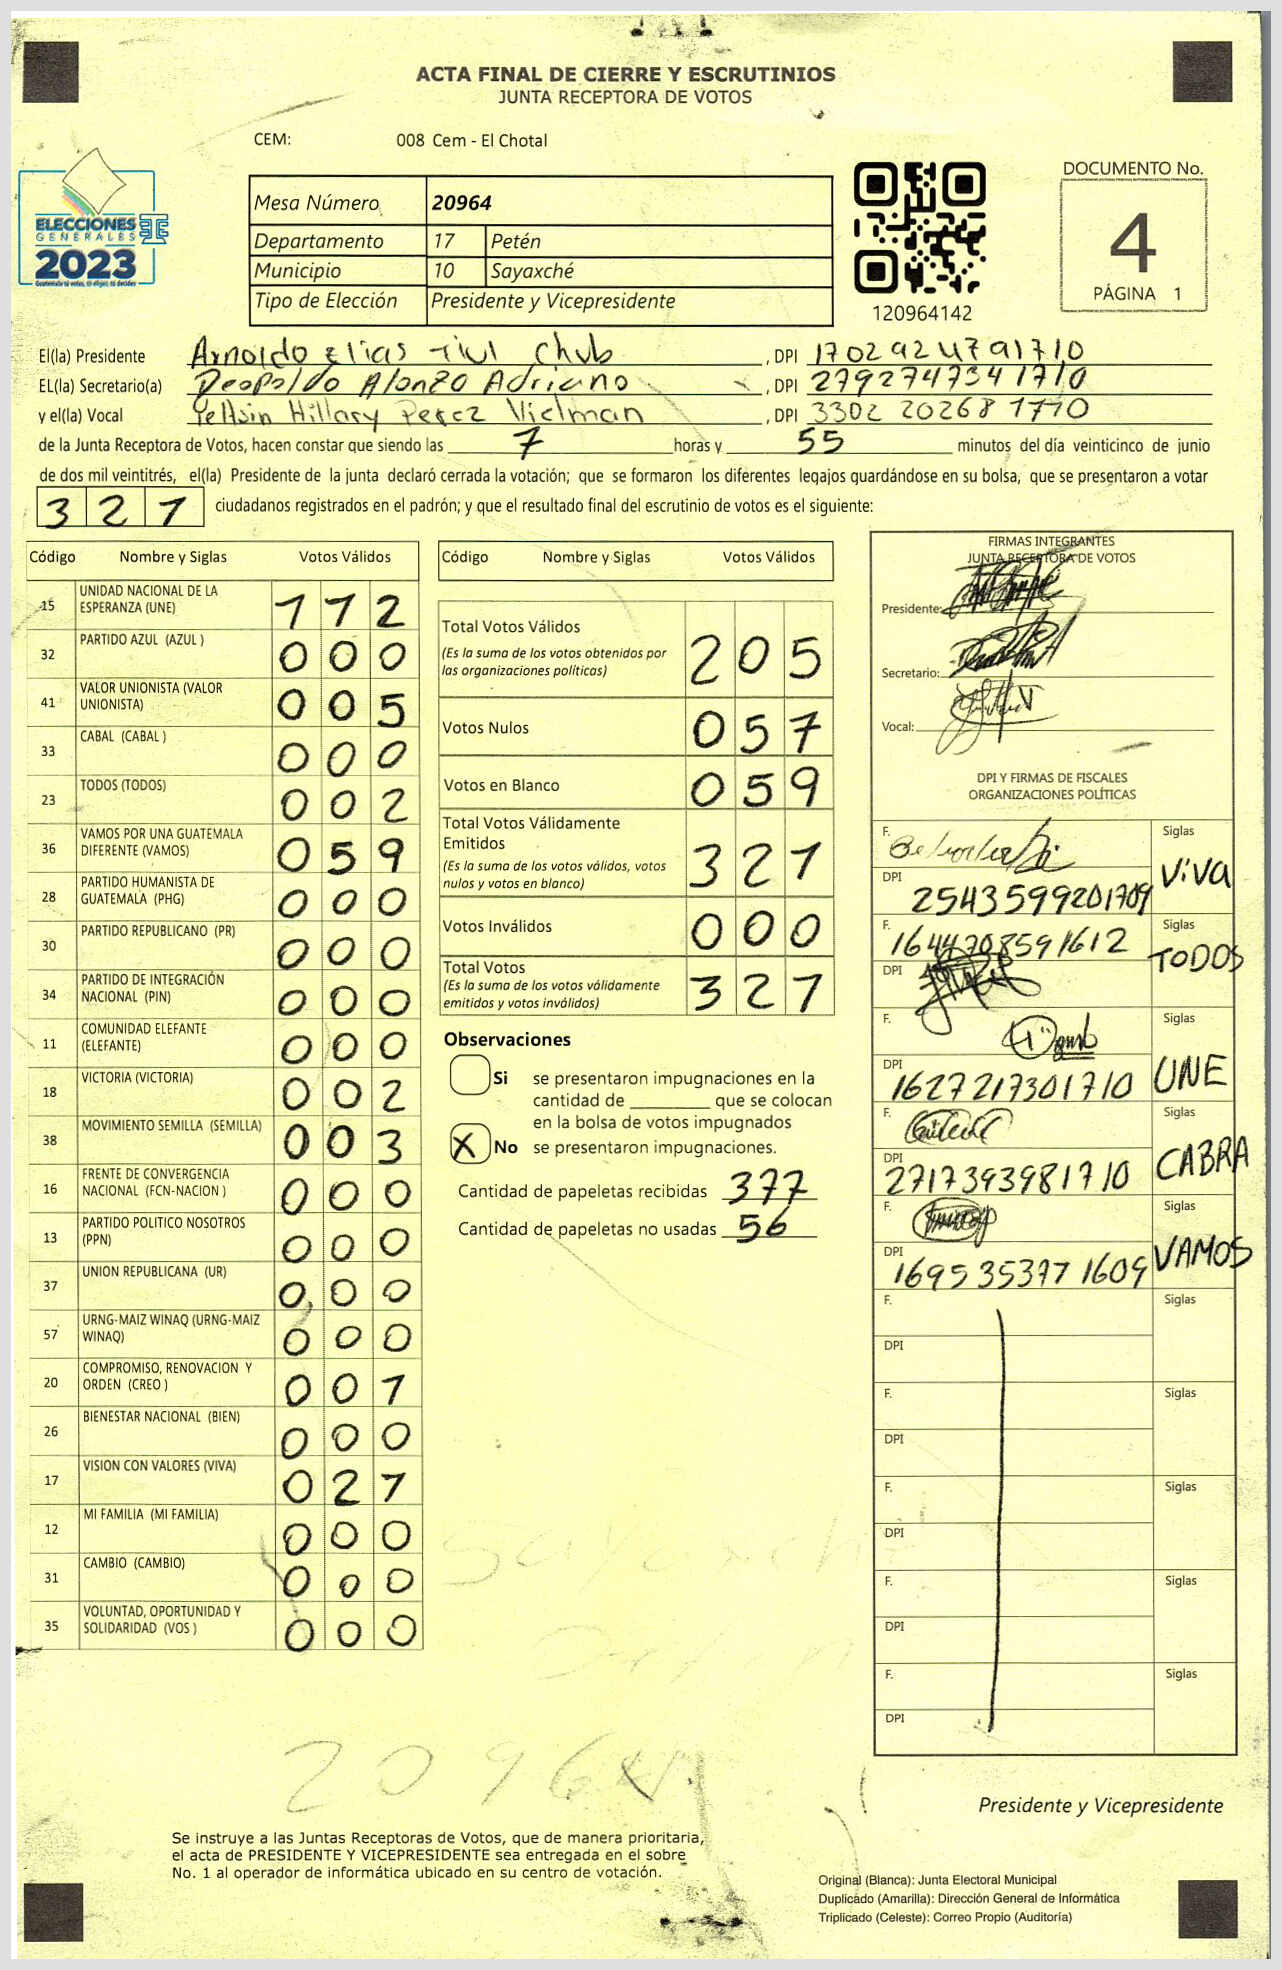 ACTA FINAL DE CIERRE Y ESCRUTINIOS
JUNTA RECEPTORA DE VOTOS
CEM: 008 Cem - El Chotal
ELECCIONES
GENERALES
2023
Mesa Número 20964
Departamento 17 Petén
Municipio 10 Sayaxché
Tipo de Elección Presidente y Vicepresidente
120964142
DOCUMENTO No.
4
PÁGINA 1
El(la) Presidente Arnoldo Elias Tiul Chub, DPI 1702924791710
EL(la) Secretario(a) Deopoldo Alonzo Adriano, DPI 2792747341710
y el(la) Vocal Yellsin Hillary Perez Vielman, DPI 3302 20268 1710
de la Junta Receptora de Votos, hacen constar que siendo las 7 horas y 55 minutos del día veinticinco de junio
de dos mil veintitrés, el(la) Presidente de la junta declaró cerrada la votación; que se formaron los diferentes legajos guardándose en su bolsa, que se presentaron a votar
321 ciudadanos registrados en el padrón; y que el resultado final del escrutinio de votos es el siguiente:
Código Nombre y Siglas Votos Válidos
15 UNIDAD NACIONAL DE LA ESPERANZA (UNE) 112
32 PARTIDO AZUL (AZUL ) 000
41 VALOR UNIONISTA (VALOR UNIONISTA) 005
33 CABAL (CABAL ) 000
23 TODOS (TODOS) 002
36 VAMOS POR UNA GUATEMALA DIFERENTE (VAMOS) 059
28 PARTIDO HUMANISTA DE GUATEMALA (PHG) 000
30 PARTIDO REPUBLICANO (PR) 000
34 PARTIDO DE INTEGRACIÓN NACIONAL (PIN) 000
11 COMUNIDAD ELEFANTE (ELEFANTE) 000
18 VICTORIA (VICTORIA) 002
38 MOVIMIENTO SEMILLA (SEMILLA) 003
16 FRENTE DE CONVERGENCIA NACIONAL (FCN-NACION ) 000
13 PARTIDO POLITICO NOSOTROS (PPN) 000
37 UNION REPUBLICANA (UR) 000
57 URNG-MAIZ WINAQ (URNG-MAIZ WINAQ) 000
20 COMPROMISO, RENOVACION Y ORDEN (CREO ) 001
26 BIENESTAR NACIONAL (BIEN) 000
17 VISION CON VALORES (VIVA) 021
12 MI FAMILIA (MI FAMILIA) 000
31 CAMBIO (CAMBIO) 000
35 VOLUNTAD, OPORTUNIDAD Y SOLIDARIDAD (VOS ) 000
Código Nombre y Siglas Votos Válidos
Total Votos Válidos 205
(Es la suma de los votos obtenidos por
las organizaciones políticas)
Votos Nulos 057
Votos en Blanco 059
Total Votos Válidamente
Emitidos 321
(Es la suma de los votos válidos, votos
nulos y votos en blanco)
Votos Inválidos 000
Total Votos 321
(Es la suma de los votos válidamente
emitidos y votos inválidos)
Observaciones
Si se presentaron impugnaciones en la
cantidad de ________ que se colocan
en la bolsa de votos impugnados
X No se presentaron impugnaciones.
Cantidad de papeletas recibidas 377
Cantidad de papeletas no usadas 56
FIRMAS INTEGRANTES
JUNTA RECEPTORA DE VOTOS
Presidente:
Secretario:
Vocal:
DPI Y FIRMAS DE FISCALES
ORGANIZACIONES POLÍTICAS
F. Siglas
DPI 2543599201709 ViVa
F. 1644708591612 Siglas
DPI TODOS
F. Siglas
DPI 1627217301710 UNE
F. Siglas
DPI 2717393981710 CABRA
F. Siglas
DPI 1695353771609 VAMOS
F. Siglas
DPI
F. Siglas
DPI
F. Siglas
DPI
F. Siglas
DPI
F. Siglas
DPI
20964
Presidente y Vicepresidente
Se instruye a las Juntas Receptoras de Votos, que de manera prioritaria,
el acta de PRESIDENTE Y VICEPRESIDENTE sea entregada en el sobre
No. 1 al operador de informática ubicado en su centro de votación.
Original (Blanca): Junta Electoral Municipal
Duplicado (Amarilla): Dirección General de Informática
Triplicado (Celeste): Correo Propio (Auditoría)